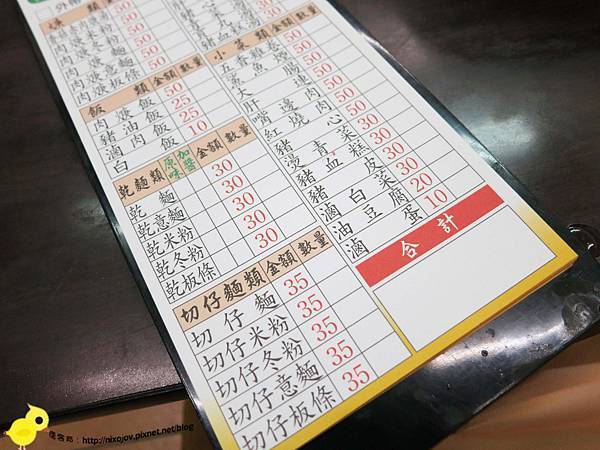 外帶
肉羹米粉 50
肉羹冬粉 50
肉羹意麵 50
肉羹板條 50
飯類 金額 數量
肉羹飯 50
豬油飯 25
滷肉飯 25
白飯 10
乾麵類 原味 加醬 金額 數量
乾麵 30
乾意麵 30
乾米粉 30
乾冬粉 30
乾板條 30
切仔麵類 金額 數量
切仔麵 35
切仔米粉 35
切仔冬粉 35
切仔意麵 35
切仔板條 35
小菜類 金額 數量
五香雞卷 50
鯊魚煙 50
大腸 50
肝
嘴邊肉 50
紅燒肉 50
豬心 50
燙青菜 30
豬血糕 30
豬皮 30
滷白菜 30
油豆腐 20
滷蛋 10
合計
http://nixojov.pixnet.net/blog